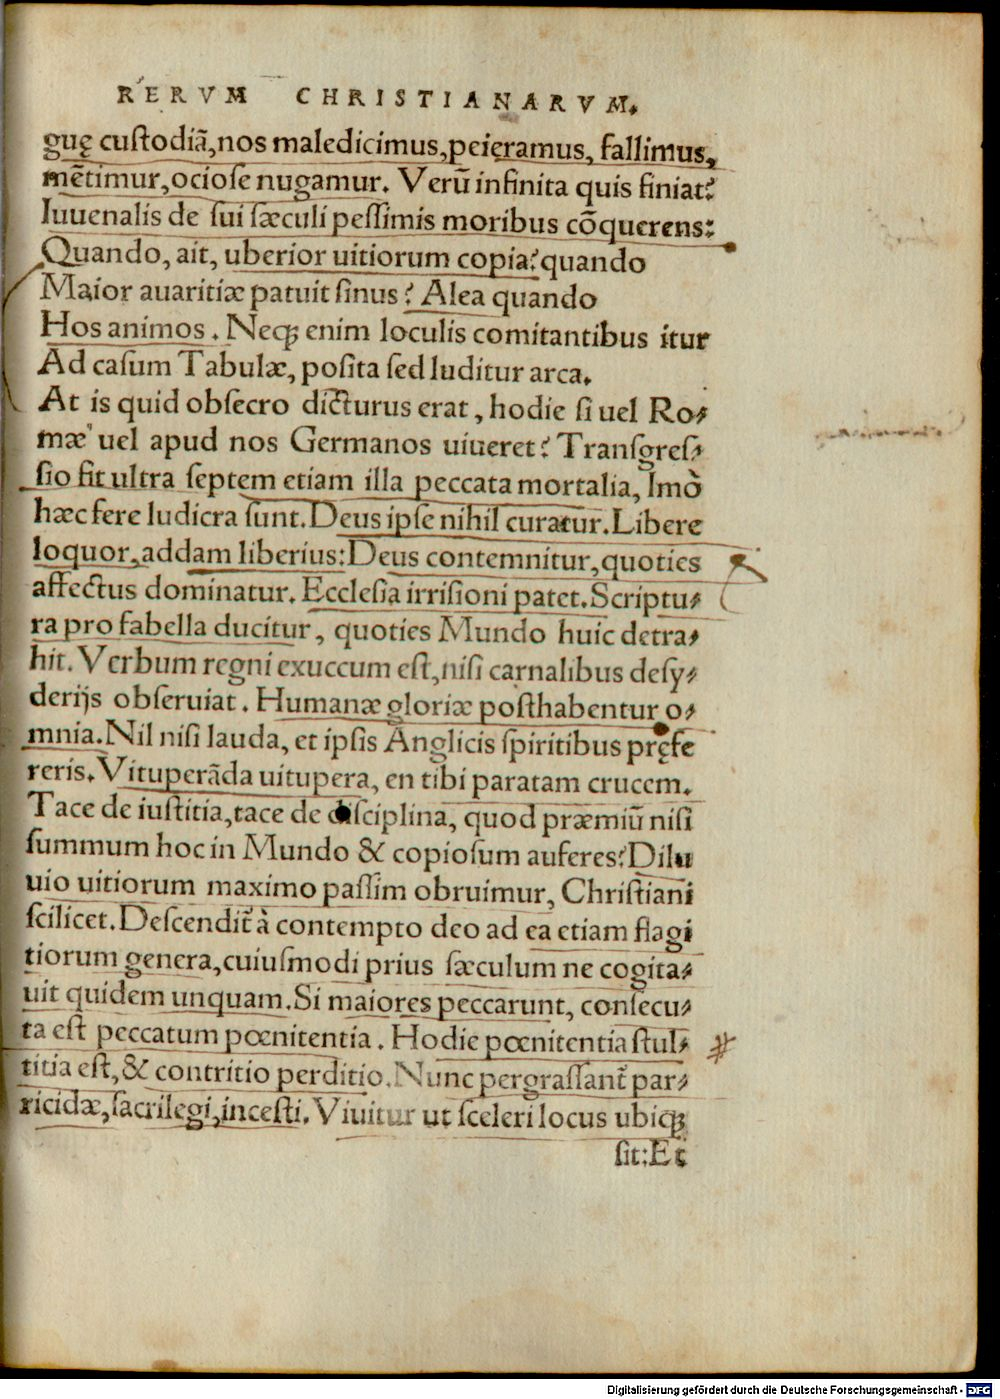 RERVM CHRISTIANARVM.
guę custodiã, nos maledicimus, peięramus, fallimus,
mẽtimur, ociose nugamur. Verũ infinita quis finiat?
Iuuenalis de sui sæculi pessimis moribus cõquerens:
Quando, ait, uberior uitiorum copia? quando
Maior auaritiæ patuit sinus? Alea quando
Hos animos. Neqꝫ enim loculis comitantibus itur
Ad casum Tabulæ, posita sed luditur arca.
At is quid obsecro dicturus erat, hodie si uel Ro-
mæ uel apud nos Germanos uiueret? Transgres-
sio fit ultra septem etiam illa peccata mortalia, Imò
hæc fere ludicra sunt. Deus ipse nihil curatur. Libere
loquor, addam liberius: Deus contemnitur, quoties
affectus dominatur. Ecclesia irrisioni patet. Scriptu-
ra pro fabella ducitur, quoties Mundo huic detra-
hit. Verbum regni exuccum est, nisi carnalibus desy-
derijs obseruiat. Humanæ gloriæ posthabentur o-
mnia. Nil nisi lauda, et ipsis Anglicis spiritibus pręfe
reris. Vituperãda uitupera, en tibi paratam crucem.
Tace de iustitia, tace de disciplina, quod præmiũ nisi
summum hoc in Mundo & copiosum auferes? Dilu
uio uitiorum maximo passim obruimur, Christiani
scilicet. Descendit̃ à contempto deo ad ea etiam flagi
tiorum genera, cuiusmodi prius sæculum ne cogita-
uit quidem unquam. Si maiores peccarunt, consecu-
ta est peccatum pœnitentia. Hodie pœnitentia stul-
titia est, & contritio perditio. Nunc pergrassant̃ par-
ricidæ, sacrilegi, incesti. Viuitur ut sceleri locus ubiqꝫ
sit: Et
Digitalisierung gefördert durch die Deutsche Forschungsgemeinschaft - DFG